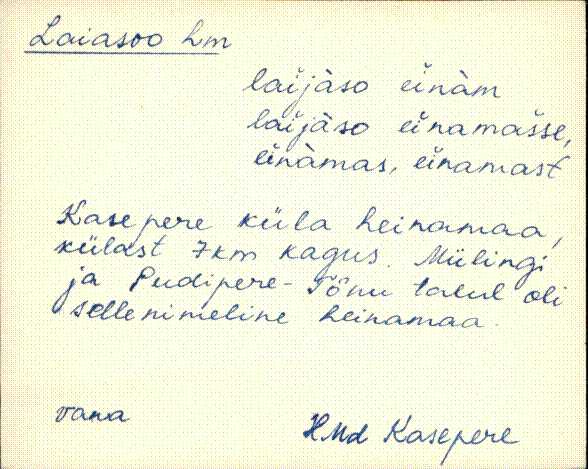 Laiasoo hm
laijàso einàm
laijàso einamašse,
einàmas, einamast
Kasepere küla heinamaa,
külast 7km kagus. Mülingi
ja Pudipere-Tõnu talul oli
sellenimeline heinamaa.
vana
HMd Kasepere